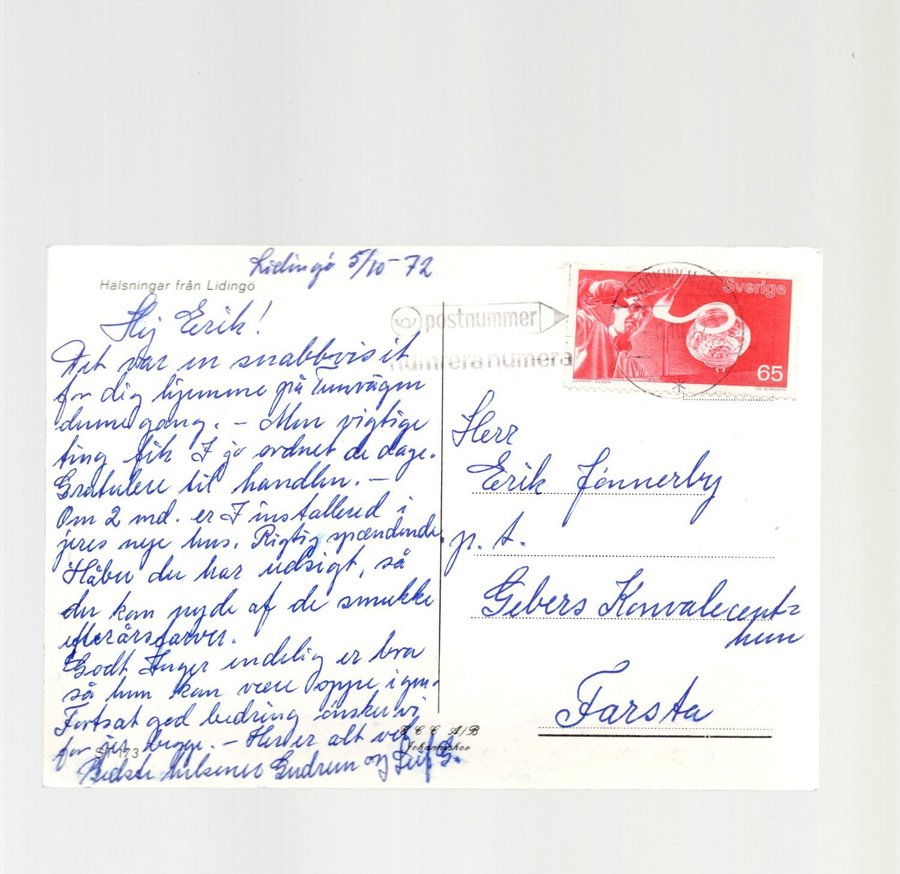 Lidingö 5/10-72
Hälsningar från Lidingö
Hej Erik!
Det var en snabbvisit
for dig hjemme på
denne gang. - Men vigtige
ting fik I jo ordnet de dage.
Gratulere til handlen. -
Om 2 md. er I installered i
jeres nye hus. Rigtig spændende.
Håber du har udsigt, så
du kan nyde af de smukke
efterårsfarver.
Godt Inger endelig er bra
så hun kan være oppe igen.
Fortsat god bedring önsker vi
for jer begge. - Her er alt vel.
Bedste hilsener Gudrun og Leif G.
173
A/B
Johanneshov
postnummer
numrera numera
STOCKHOLM
Sverige
65
Herr
Erik Jönnerby
p. t.
Gebers Konvalecent=
hem
Farsta